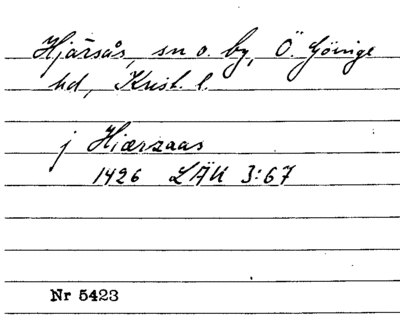 Hjärsås, sn o. by, Ö. Göinge
hd, Krist. l.
j Hiærzaas
1426 LÄU 3:67
Nr 5423